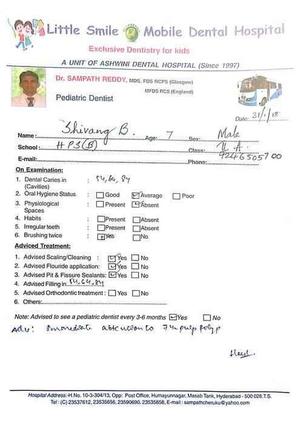 Little Smile Mobile Dental Hospital
Exclusive Dentistry for kids
A UNIT OF ASHWINI DENTAL HOSPITAL (Since 1997)
Dr. SAMPATH REDDY, MDS, FDS RCPS (Glasgow)
MFDS RCS (England)
Pediatric Dentist
Date:
Name: Shivang B. Age: 7 Sex: Male
School: HPS(B) Class: II A
E-mail: Phone: 9246505700
On Examination:
1. Dental Caries in : 54,64,84
(Cavities)
2. Oral Hygiene Status : Good Average Poor
3. Physiological : Present Absent
Spaces
4. Habits : Present Absent
5. Irregular teeth : Present Absent
6. Brushing twice : Yes No
Adviced Treatment:
1. Advised Scaling/Cleaning : Yes No
2. Advised Flouride application: Yes No
3. Advised Pit & Fissure Sealants: Yes No
4. Advised Filling in 54,64,84
5. Advised Orthodontic treatment : Yes No
6. Others:
Note: Advised to see a pediatric dentist every 3-6 months Yes No
Adv: Immediate attention to 74 pulp polyp
Hospital Address: H.No. 10-3-304/13, Opp: Post Office, Humayunnagar, Masab Tank, Hyderabad - 500 028.T.S.
Tel: (C) 23537612, 23535656, 23590690, 23535858, E-mail: sampathcheruku@yahoo.com